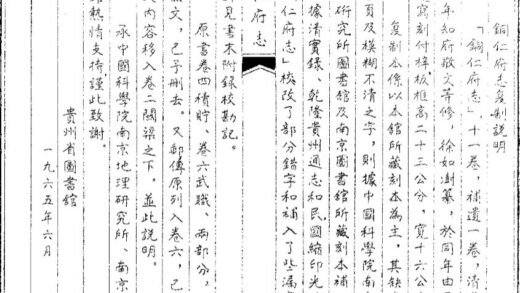 銅仁府志复制說明
「銅仁府志」十一卷，補遺一卷，清
年知府敬文等修，徐如澍纂，於同年由
寫刻付梓板框高二十三公分，寬十六公
复制本係以本館所藏刻本為主，其缺
頁及模糊不清之字，則據中國科學院南
研究所圖書館及南京圖書館所藏刻本補
據清實錄、乾隆貴州通志和民國縮印光
仁府志」核改了部分錯字和補入了些漏
府志
見書末附錄校勘記。
原書卷四積貯、卷六武職、兩部分，
無文，已予刪去。又郵傳原列入卷六，已
內容移入卷二關梁之下，並此說明。
承中國科學院南京地理研究所、南京
熱情支持謹此致謝。
貴州省圖書館
一九六五年六月